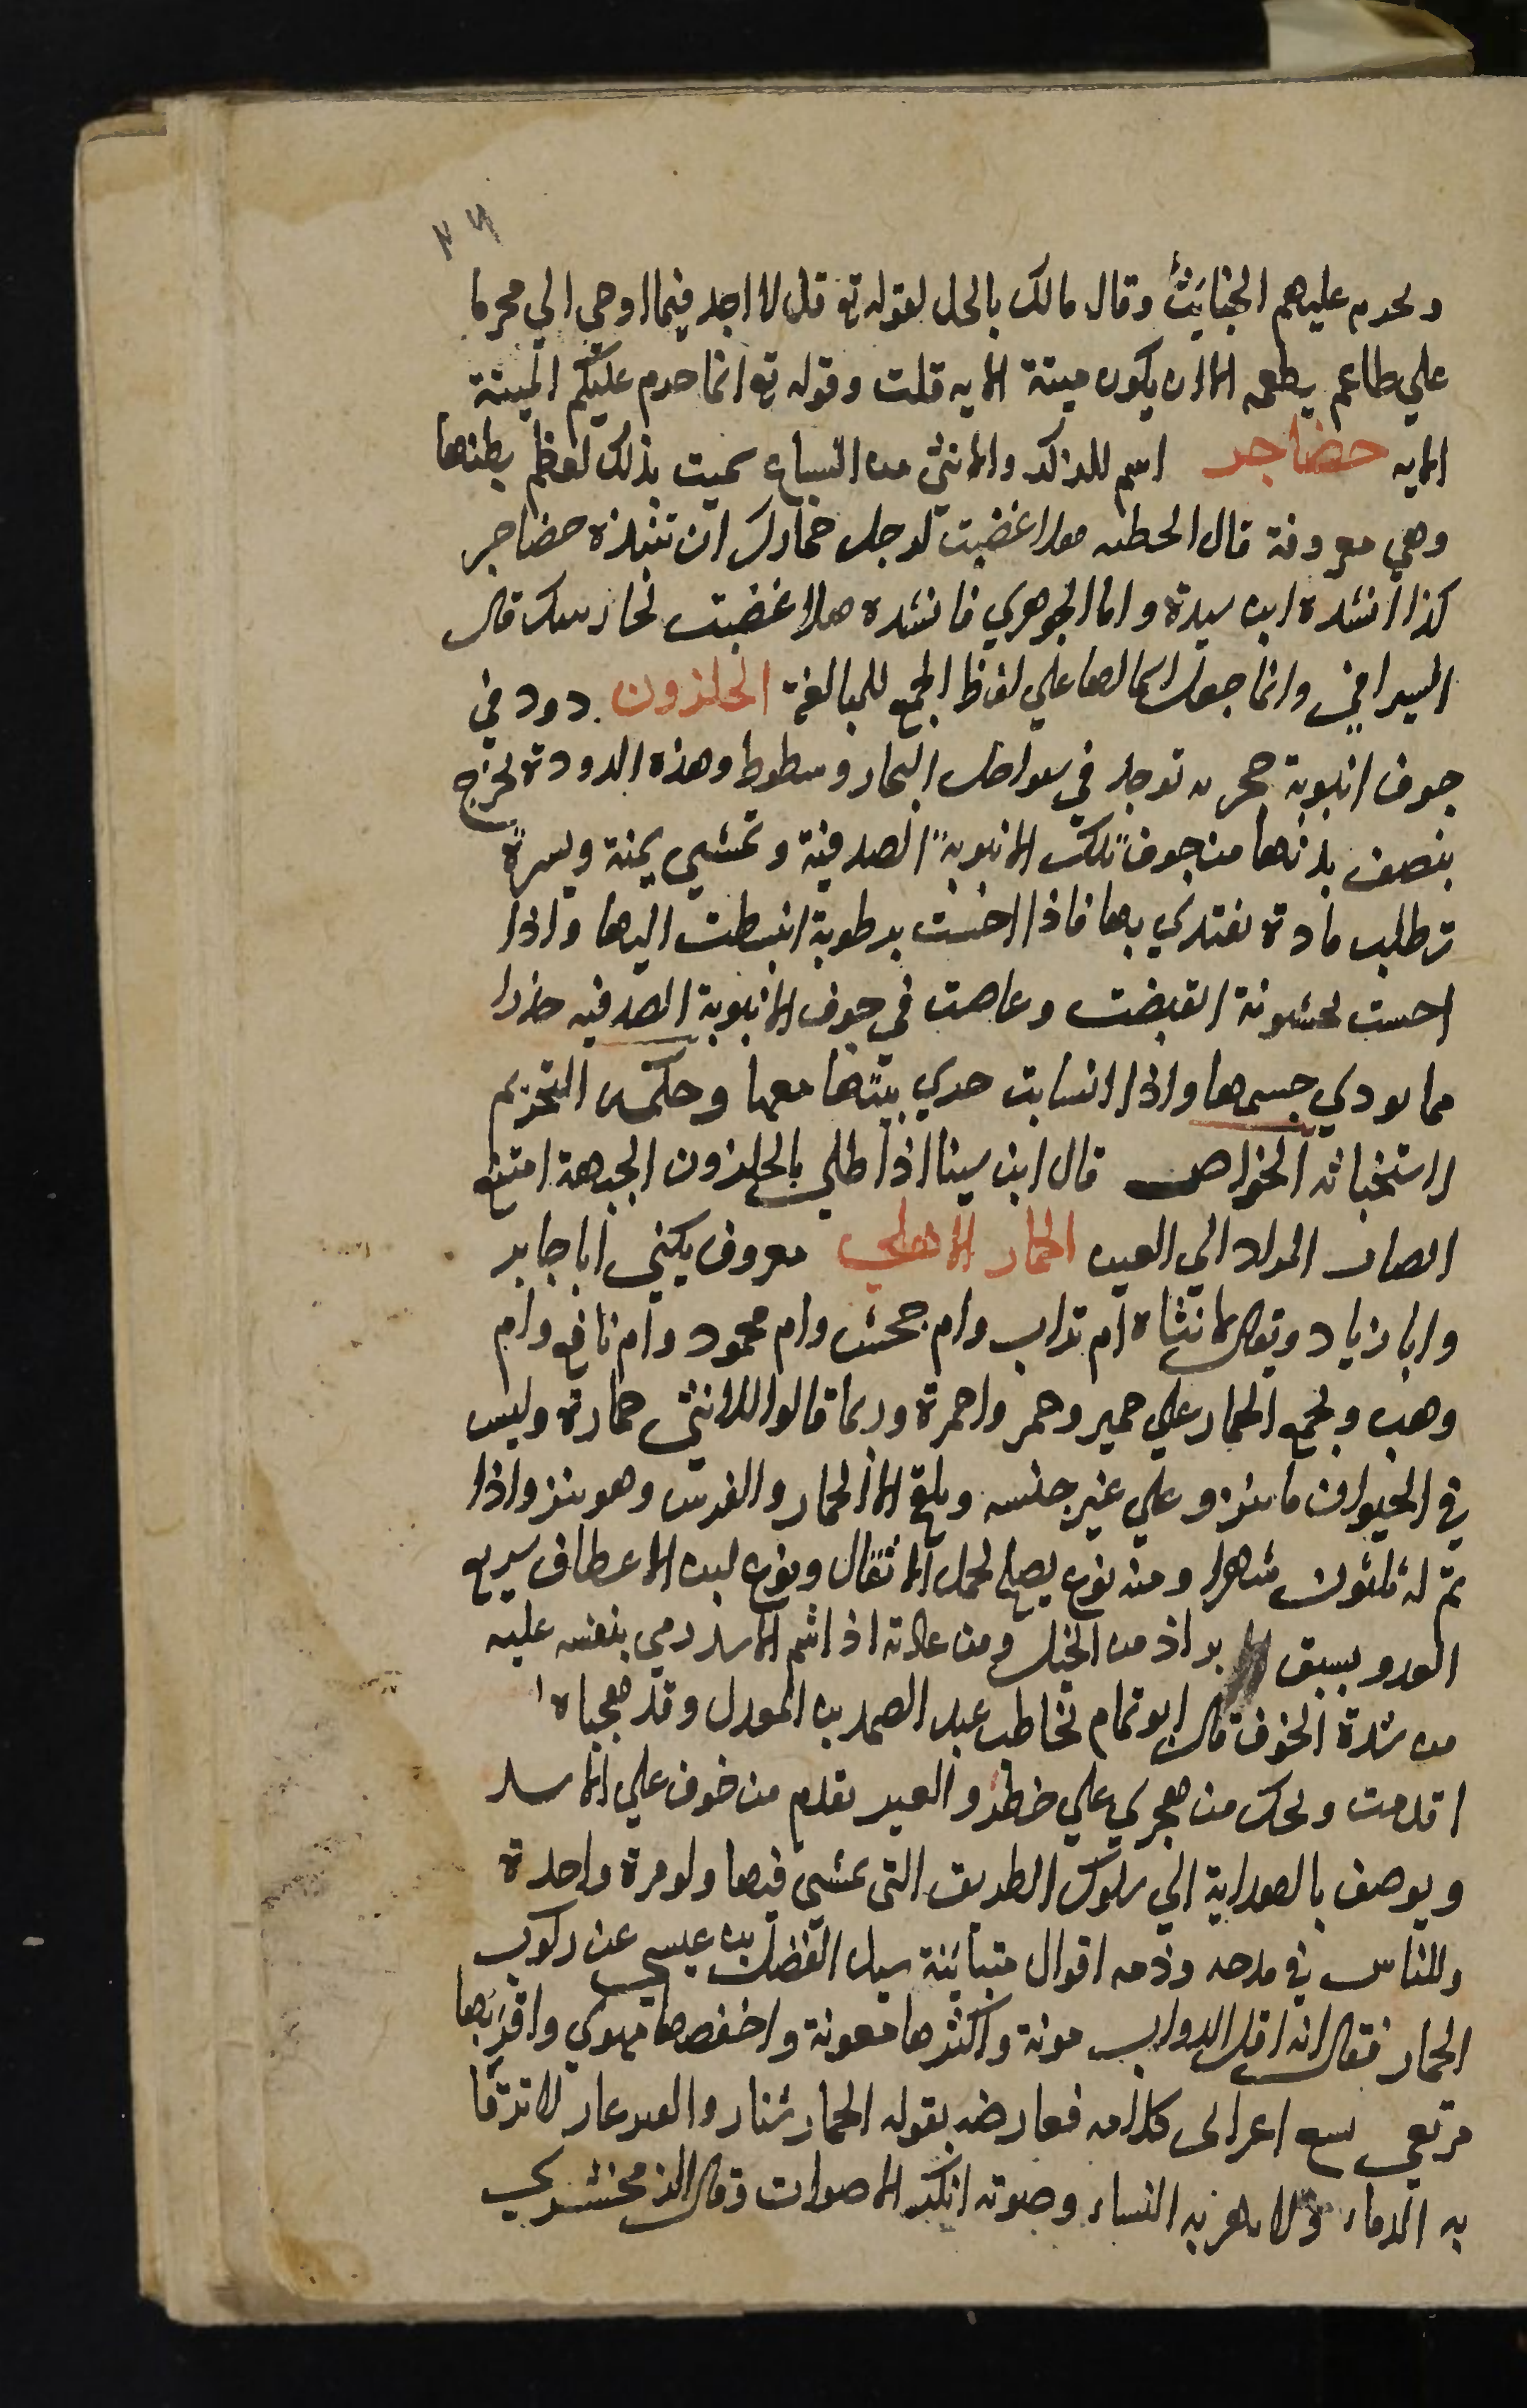 ٢٦
ويحرم عليهم الخبايَثَ وقال مالك بالحل لقوله تع قل لا اجد فيما اوحي الي محرما
علي طاعم يطعمه الا ان يكون ميتة الايه قلت وقوله تع انما حرم عليكم الميتة
الايه حضاجر اسم للذكر والانثي من السباع سميت بذلك لعظم بطنها
وهي معروفة قال الحطيه هلا غضبت لرجل جارك ان تنبذه حضاجر
كذا انشده ابن سيدة واما الجوهري فانشده هلا غضبت لجار بيتك قال
السيرافي وانما جعل اسما لها علي لفظ الجمع للمبالغة الحلزون دود في
جوف انبوبة حجريه توجد في سواحل البحار وشطوط وهذه الدودة تخرج
بنصف بدنها من جوف تلك الانبوبة الصدفية وتمشي يمنة ويسرة
تطلب مادة تغتدي بها فاذا احست برطوبة انبسطت اليها واذا
احست بخشونة انقبضت وغاصت في جوف الانبوبة الصدفيه حذرا
مما يودي جسمها واذا انسابت جري بيتها معها وحكمها التحريم
لاستخباثه الخواص قال ابن سينا اذا طلي بالحلزون الجبهة امتنع
انصباب المواد الي العين الحمار الاهلي معروف يكني ابا جابر
وابا زياد ويقال لانثاه ام تولب وام جحش وام محمود وام نافع وام
وهب ويجمع الحمار علي حمير وحمر واحمرة وربما قالوا للانثي حمارة وليس
في الحيوان ما ينزو علي غير جنسه ويلقح الا الحمار والفرس وهو ينزو اذا
تم له ثلثون شهرا ومنه نوع يصلح لحمل الاثقال ونوع لين الاعطاف سريع
العدو يسبق براذين الخيل ومن عادته اذا شم الاسد رمي بنفسه عليه
من شدة الخوف قال ابو تمام يخاطب عبد الصمد بن المعدل وقد هجاه
اقدمت ويحك من هجوي علي خطر والعير يقدم من خوف علي الاسد
ويوصف بالهداية الي سلوك الطريق التي مشي فيها ولو مرة واحدة
وللناس في مدحه وذمه اقوال متباينة سيل الفضل بن عيسي عن ركوب
الحمار فقال انه اقل الدواب مونة واكثرها معونة واخفضها مهوي واقربها
مرتقي سمع اعرابي كلامه فعارضه بقوله الحمار شنار والعير عار لا ترقا
به الدما، ولا يمهر به النساء وصوته انكر الاصوات وقال الزمخشري